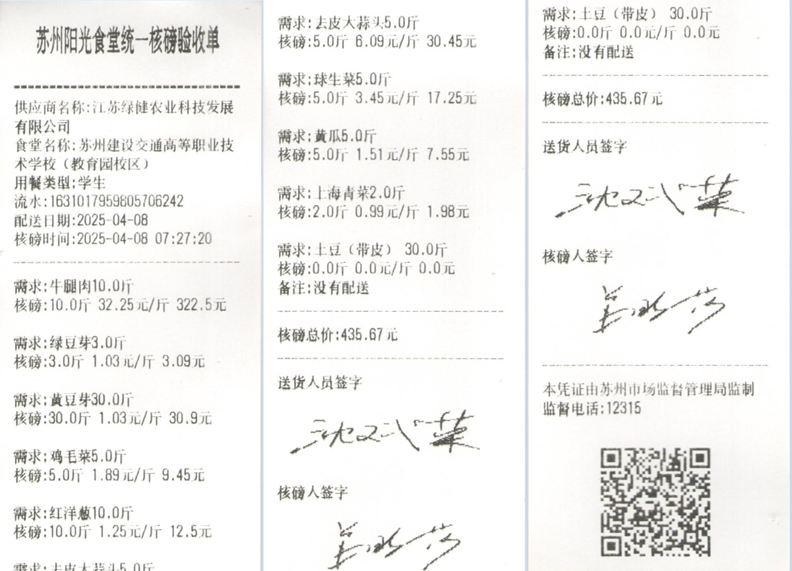 苏州阳光食堂统一核磅验收单
供应商名称:江苏绿健农业科技发展
有限公司
食堂名称:苏州建设交通高等职业技
术学校(教育园校区)
用餐类型:学生
流水:1631017959805706242
配送日期:2025-04-08
核磅时间:2025-04-08 07:27:20
需求:牛腿肉10.0斤
核磅:10.0斤 32.25元/斤 322.5元
需求:绿豆芽3.0斤
核磅:3.0斤 1.03元/斤 3.09元
需求:黄豆芽30.0斤
核磅:30.0斤 1.03元/斤 30.9元
需求:鸡毛菜5.0斤
核磅:5.0斤 1.89元/斤 9.45元
需求:红洋葱10.0斤
核磅:10.0斤 1.25元/斤 12.5元
需求:去皮大蒜头5.0斤
需求:去皮大蒜头5.0斤
核磅:5.0斤 6.09元/斤 30.45元
需求:球生菜5.0斤
核磅:5.0斤 3.45元/斤 17.25元
需求:黄瓜5.0斤
核磅:5.0斤 1.51元/斤 7.55元
需求:上海青菜2.0斤
核磅:2.0斤 0.99元/斤 1.98元
需求:土豆(带皮) 30.0斤
核磅:0.0斤 0.0元/斤 0.0元
备注:没有配送
核磅总价:435.67元
送货人员签字
核磅人签字
需求:土豆(带皮) 30.0斤
核磅:0.0斤 0.0元/斤 0.0元
备注:没有配送
核磅总价:435.67元
送货人员签字
核磅人签字
本凭证由苏州市场监督管理局监制
监督电话:12315